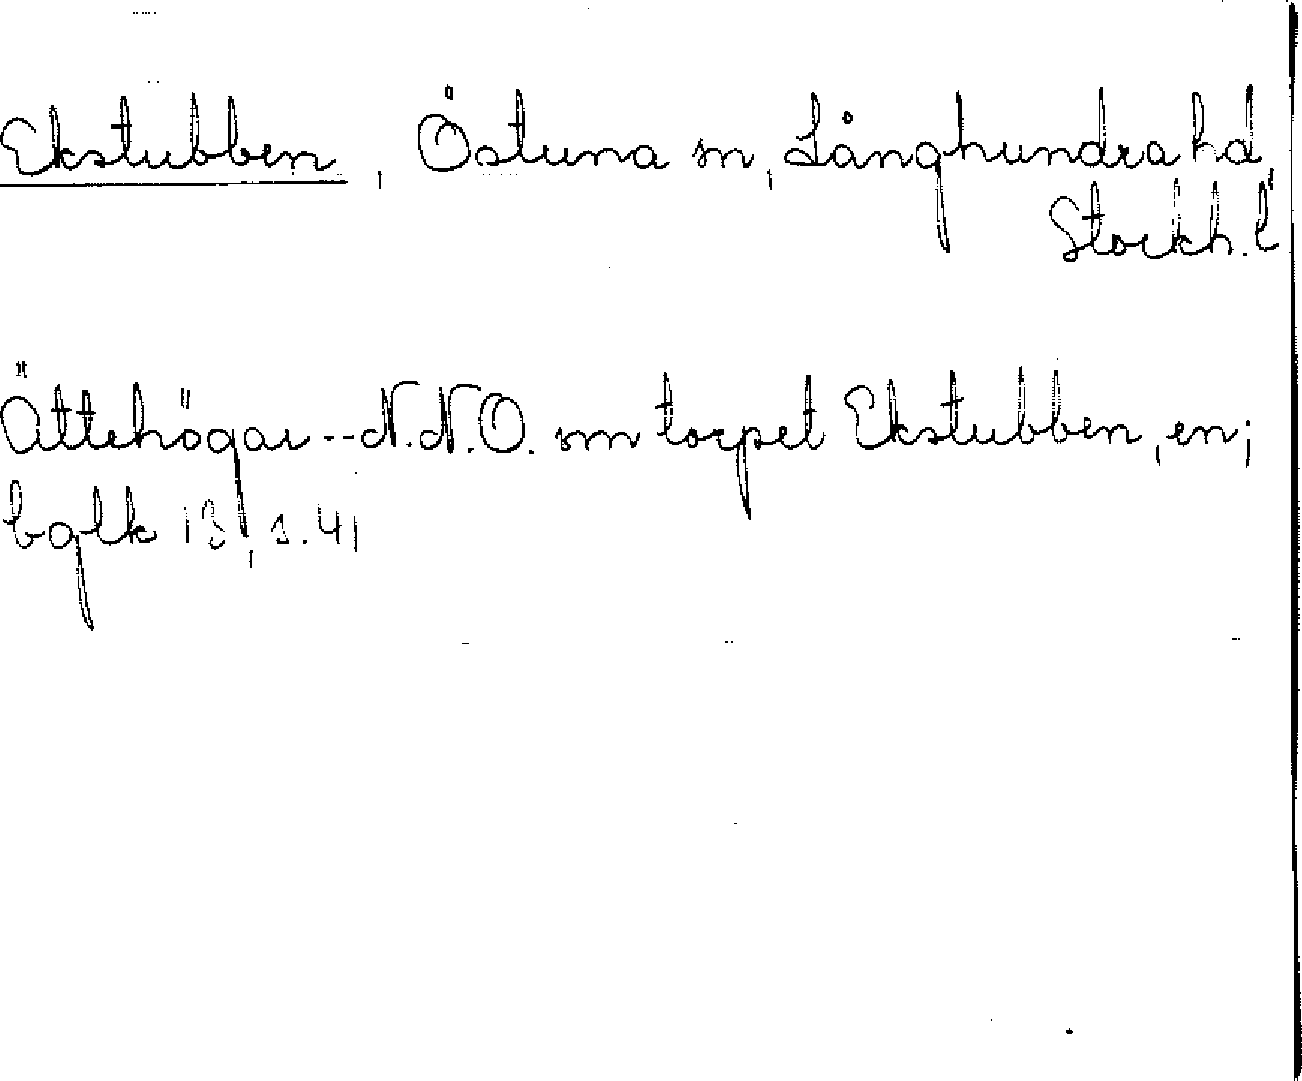 Ekstubben, Östuna sn, Långhundra hd,
Stockh. l
Ättehögar--N.N.O. om torpet Ekstubben, en;
bglk 13, s. 41